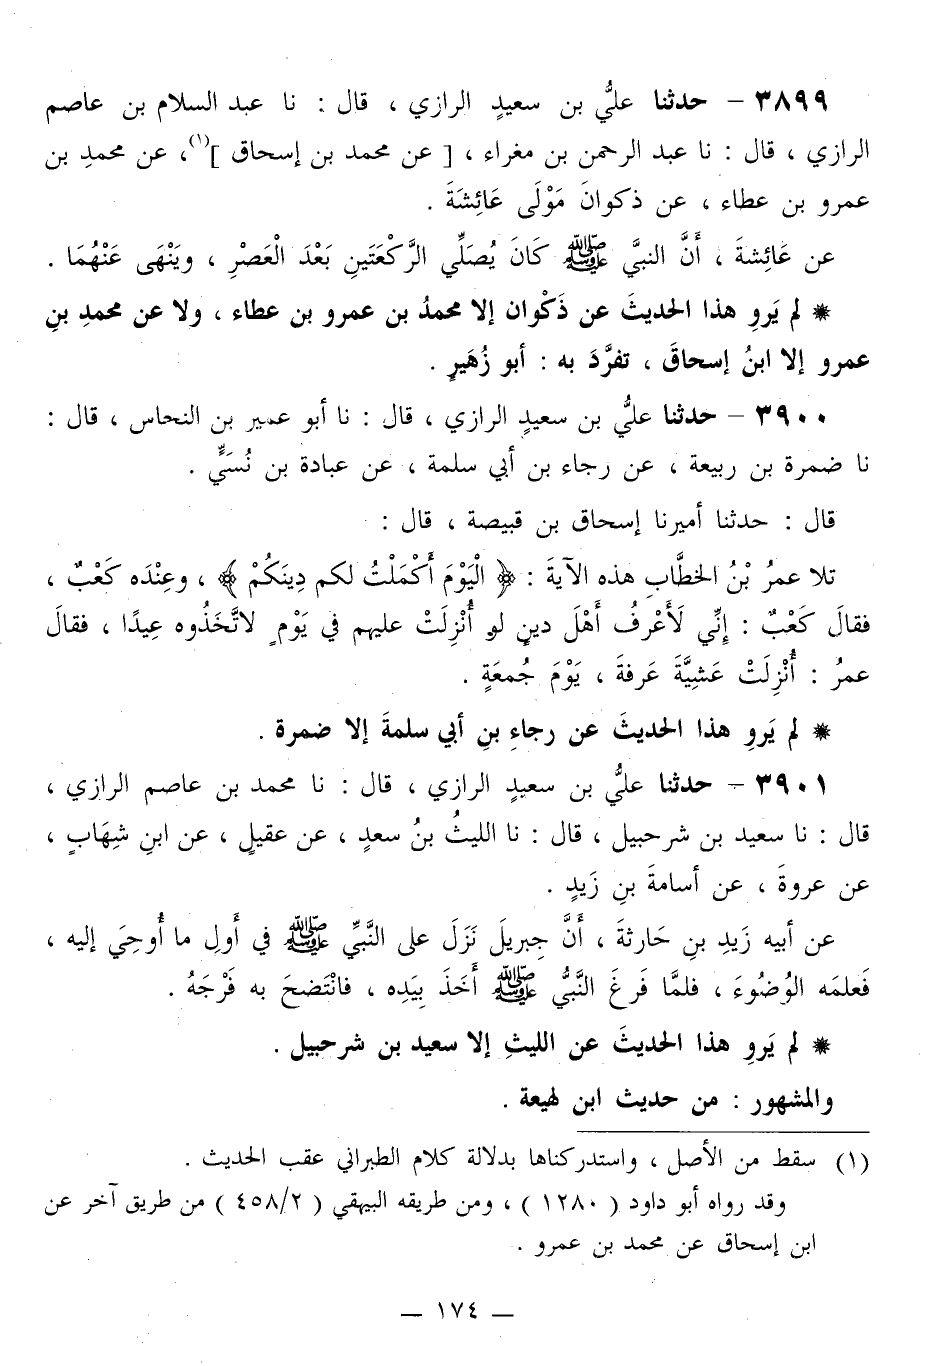 ٣٨٩٩ – حدثنا عليُّ بن سعيدٍ الرازي ، قال : نا عبد السلام بن عاصم
الرازي ، قال : نا عبد الرحمن بن مغراء ، [ عن محمد بن إسحاق ](١)، عن محمدِ بن
عمرو بن عطاء ، عن ذكوانَ مَوْلَى عَائِشَةَ .
عن عَائِشةَ ، أَنَّ النبيَّ ﷺ كَانَ يُصَلِّي الرَّكْعَتَينِ بَعْدَ الْعَصْرِ ، ويَنْهَى عَنْهُمَا .
* لم يَروِ هذا الحديثَ عن ذَكْوان إلا محمدُ بن عمرو بن عطاء ، ولا عن محمدِ بنِ
عمرو إلا ابنُ إسحاقَ ، تفرَّدَ به : أبو زُهَيرٍ .
٣٩٠٠ – حدثنا عليُّ بن سعيدٍ الرازي ، قال : نا أبو عمير بن النحاس ، قال :
نا ضمرة بن ربيعة ، عن رجاء بن أبي سلمة ، عن عبادة بن نُسَيٍّ .
قال : حدثنا أميرنا إسحاق بن قبيصة ، قال :
تلا عمرُ بْنُ الخطَّابِ هذه الآيةَ : ﴿ الْيَوْمَ أَكْمَلْتُ لكم دِينَكُمْ ﴾ ، وعِنْدَه كَعْبٌ ،
فقالَ كَعْبٌ : إِنِّي لَأَعْرِفُ أَهْلَ دينٍ لو أُنْزِلَتْ عليهم في يَوْمٍ لاتَّخَذُوه عِيدًا ، فقالَ
عمرُ : أُنْزِلَتْ عَشِيَّةَ عَرفةَ ، يَوْمَ جُمعَةٍ .
* لم يَروِ هذا الحديثَ عن رجاءِ بنِ أبي سلمةَ إلا ضمرة .
٣٩٠١ – حدثنا عليُّ بن سعيدٍ الرازي ، قال : نا محمد بن عاصم الرازي ،
قال : نا سعيد بن شرحبيل ، قال : نا الليثُ بنُ سعدٍ ، عن عقيلٍ ، عن ابنِ شِهَابٍ ،
عن عروةَ ، عن أسامةَ بنِ زَيدٍ .
عن أبيه زَيدِ بنِ حَارثةَ ، أَنَّ جِبريلَ نَزَلَ على النَّبيِّ ﷺ في أَولِ ما أُوحِيَ إليه ،
فَعلمَه الوُضُوءَ ، فلمَّا فَرغَ النَّبيُّ ﷺ أَخَذَ بِيَدِه ، فانْتَضحَ به فَرْجَهُ .
* لم يَروِ هذا الحديثَ عن الليثِ إلا سعيد بن شرحبيل .
والمشهور : من حديث ابن لهيعة .
(١) سقط من الأصل ، واستدركناها بدلالة كلام الطبراني عقب الحديث .
وقد رواه أبو داود ( ١٢٨٠ ) ، ومن طريقه البيهقي ( ٤٥٨/٢ ) من طريق آخر عن
ابن إسحاق عن محمد بن عمرو .
— ١٧٤ —